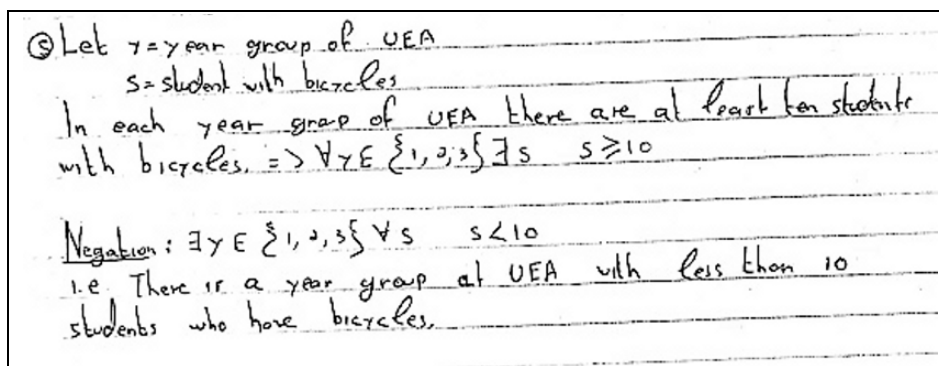 ⑤ Let y = year group of UEA
s = student with bicycles
In each year group of UEA there are at least ten students
with bicycles. => ∀y ∈ {1, 2, 3} ∃ s s ≥ 10
Negation: ∃y ∈ {1, 2, 3} ∀ s s < 10
i.e There is a year group at UEA with less than 10
students who have bicycles.